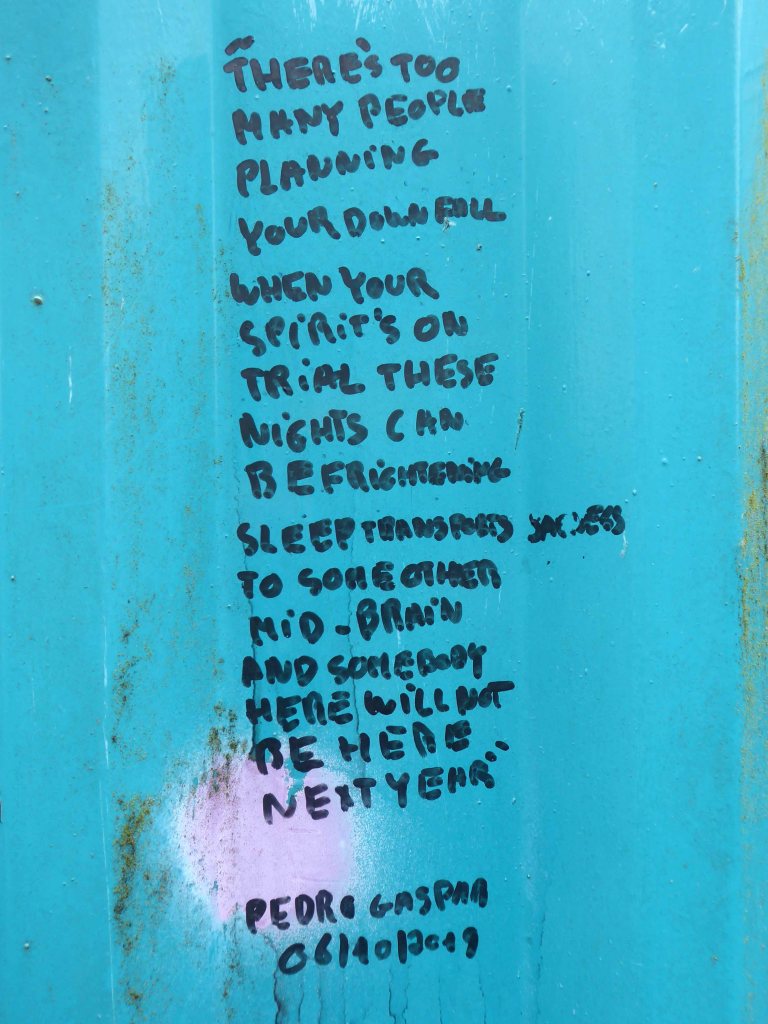 "THERE'S TOO
MANY PEOPLE
PLANNING
YOUR DOWNFALL
WHEN YOUR
SPIRIT'S ON
TRIAL THESE
NIGHTS CAN
BE FRIGHTENING
SLEEP TRANSPORTS
TO SOME OTHER
MID-BRAIN
AND SOMEBODY
HERE WILL NOT
BE HERE
NEXT YEAR"
PEDRO GASPAR
06/10/2019